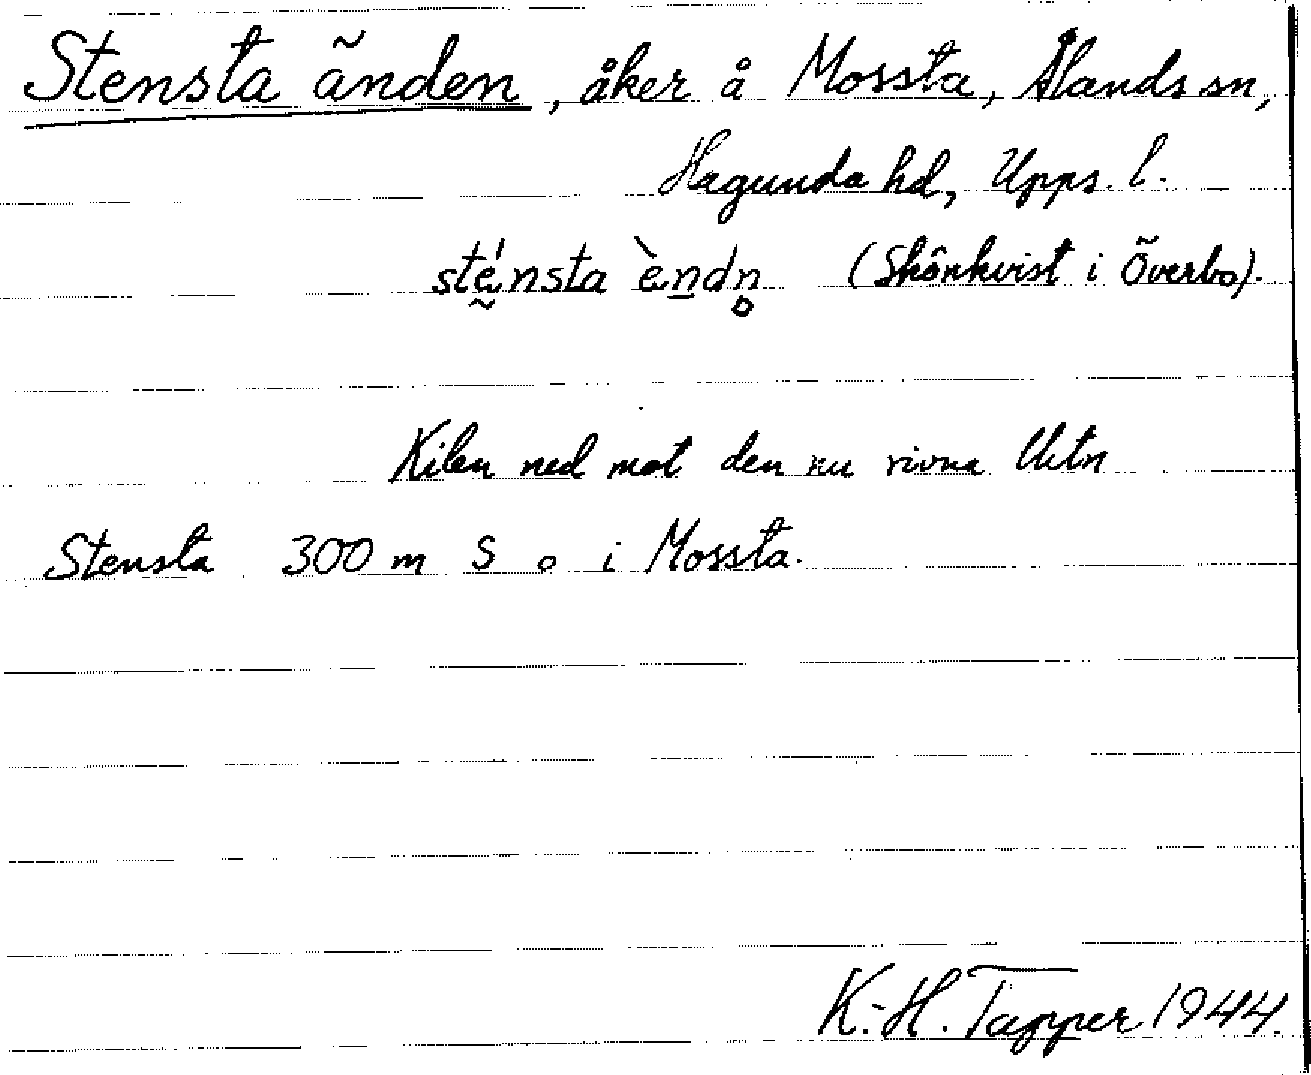 Stensta änden, åker å Mossta, Ålands sn,
Hagunda hd, Upps. l.
stḛ́nsta èn̲dn̥ (Skönkvist i Överbo).
Kilen ned mot den nu rivna Utn
Stensta 300 m S o i Mossta.
K.-H. Tapper 1944.